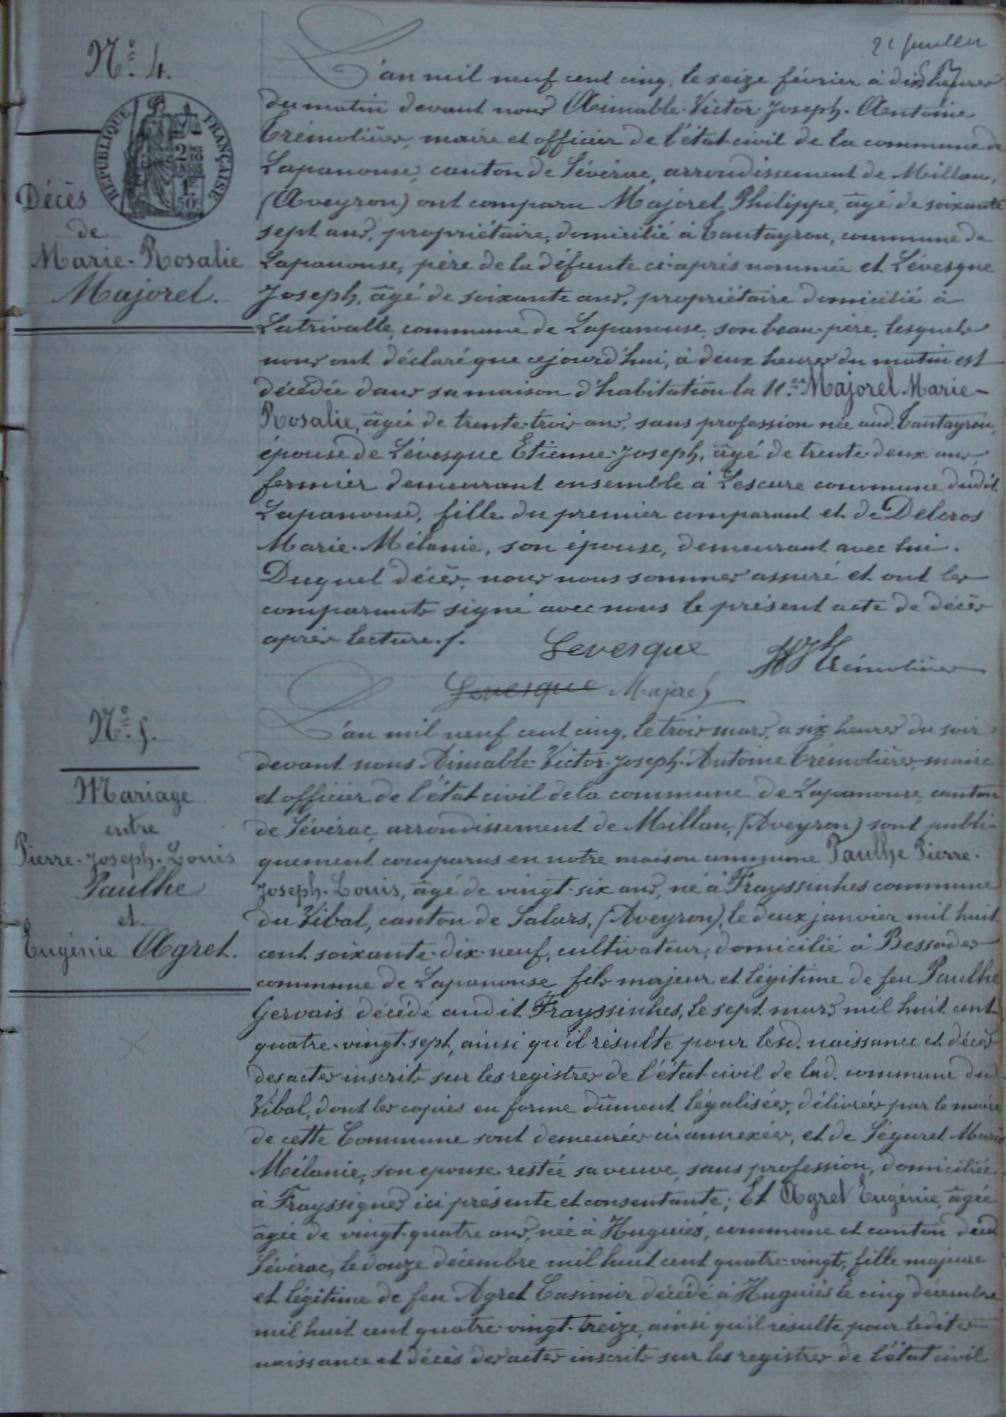 2e feuillet
N° 4.
RÉPUBLIQUE FRANÇAISE
Décès
de
Marie-Rosalie
Majorel.
L'an mil neuf cent cinq, le seize février à dix heures
du matin devant nous Aimable-Victor-Joseph-Antoine
Trémolières, maire et officier de l'état civil de la commune de
Lapanouse, canton de Sévérac, arrondissement de Millau,
(Aveyron) ont comparu Majorel Philippe, âgé de soixante
sept ans, propriétaire, domicilié à Tantayrou, commune de
Lapanouse, père de la défunte ci-après nommée et Lévesque
Joseph, âgé de soixante ans, propriétaire domicilié à
Latrivalle, commune de Lapanouse, son beau-père, lesquels
nous ont déclaré que cejourd'hui, à deux heures du matin est
décédée dans sa maison d'habitation la n.ée Majorel Marie-
Rosalie, âgée de trente-trois ans, sans profession née aud. Tantayrou,
épouse de Lévesque Etienne-Joseph, âgé de trente-deux ans,
fermier demeurant ensemble à Lescure commune dudit
Lapanouse, fille du premier comparant et de Delcros
Marie-Mélanie, son épouse, demeurant avec lui.
Duquel décès, nous nous sommes assuré et ont les
comparants signé avec nous le présent acte de décès
après lecture./.
Levesque
Trémolières
Levesque Majorel
N° 5.
Mariage
entre
Pierre-Joseph-Louis
Paulhe
et
Eugénie Agret.
L'an mil neuf cent cinq, le trois mars, a six heures du soir
devant nous Aimable-Victor-Joseph-Antoine Trémolières, maire
et officier de l'état civil de la commune de Lapanouse, canton
de Sévérac, arrondissement de Millau, (Aveyron) sont publi-
quement comparus en notre maison commune Paulhe Pierre-
Joseph-Louis, âgé de vingt-six ans, né à Frayssinhes commune
du Vibal, canton de Salars, (Aveyron), le deux janvier mil huit
cent soixante-dix-neuf, cultivateur, domicilié à Bessodes
commune de Lapanouse fils majeur et légitime de feu Paulhe
Gervais décédé audit Frayssinhes, le sept mars mil huit cent
quatre-vingt-sept, ainsi qu'il résulte pour lesd. naissance et décès
des actes inscrits sur les registres de l'état civil de lad. commune du
Vibal, dont les copies en forme dûment légalisées, délivrées par le maire
de cette Commune sont demeurées ci-annexées, et de Séguret Marie
Mélanie, son epouse restée sa veuve, sans profession, domiciliée
à Frayssignes ici présente et consentante; Et Agret Eugénie, âgée
âgée de vingt-quatre ans, née à Huguiés, commune et canton de
Sévérac, le douze décembre mil huit cent quatre-vingt, fille majeure
et légitime de feu Agret Casimir décédé à Huguiés le cinq décembre
mil huit cent quatre-vingt-treize, ainsi qu'il résulte pour ledites
naissance et décès des actes inscrits sur les registres de l'état civil